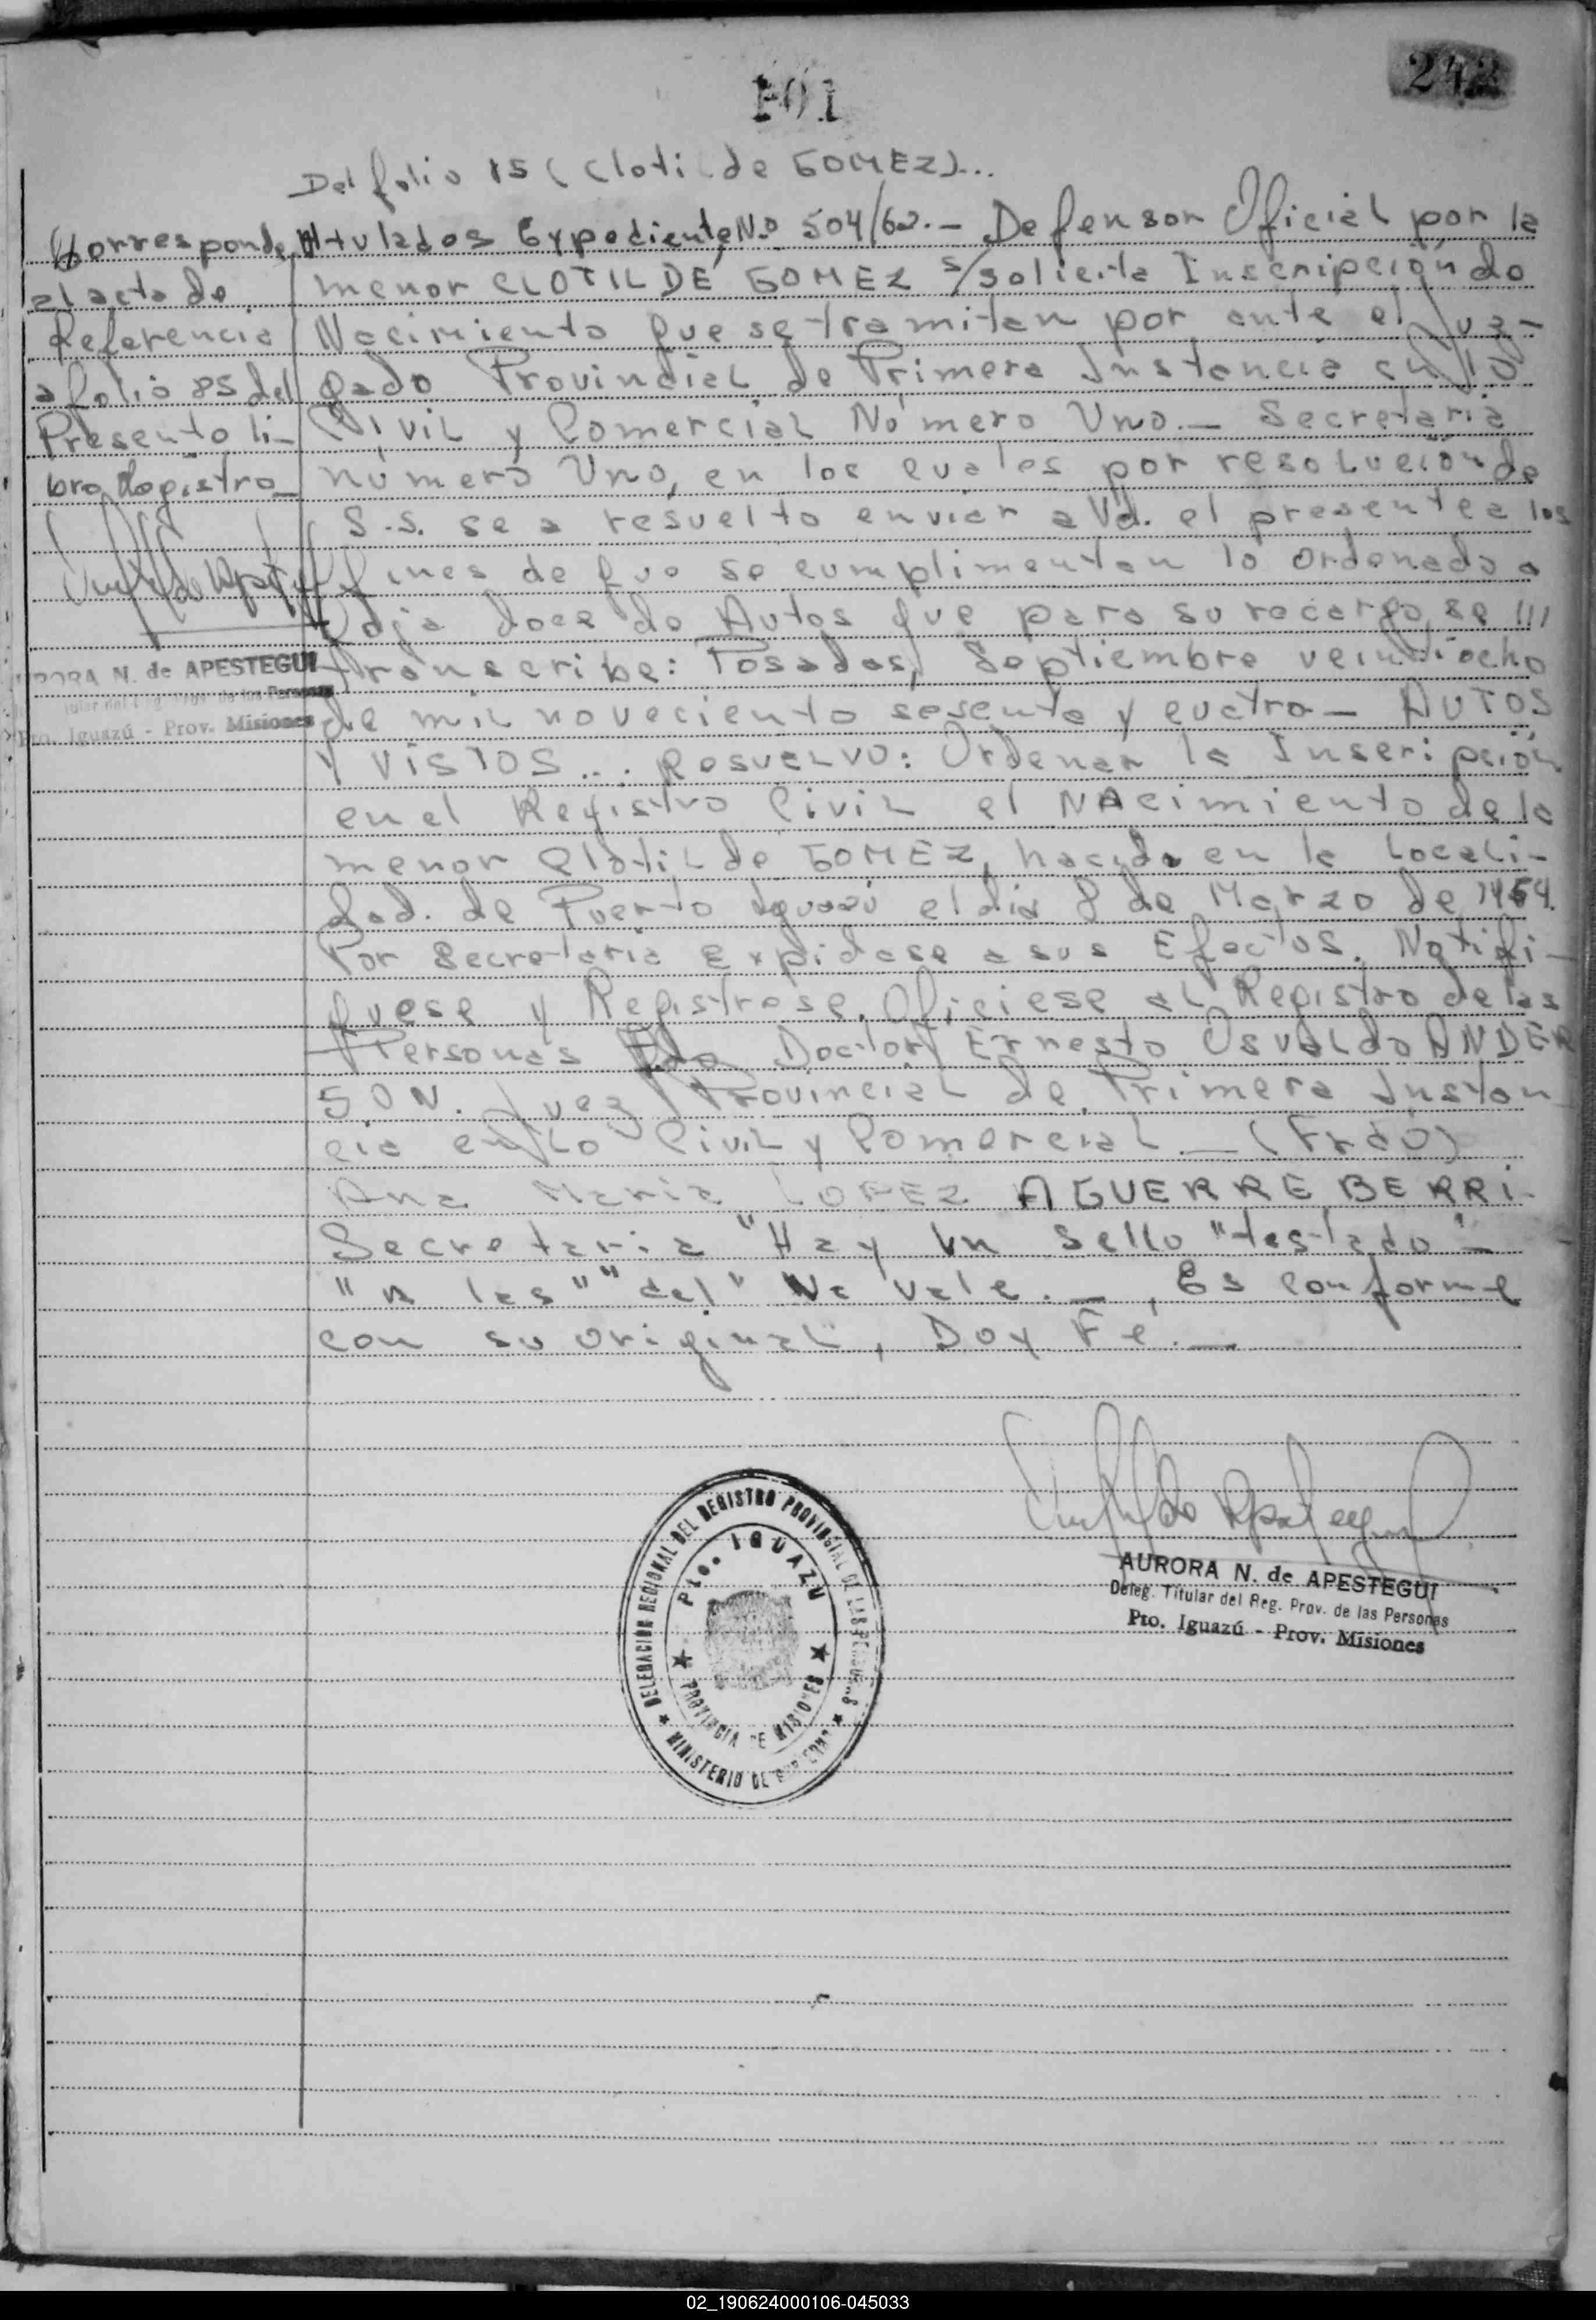 242
101
Del folio 15 (Clotilde GOMEZ)...
Corresponde
al acta de
Referencia
a folio 85 del
Presente li-
bro Registro
AURORA N. de APESTEGUI
Titular del Reg. Prov. de las Personas
Pto. Iguazú - Prov. Misiones
titulados Expediente, No 504/60.- Defensor Oficial por la
menor CLOTILDE GOMEZ s/solicita Inscripción de
Nacimiento que se tramitan por ante el Juz-
gado Provincial de Primera Instancia en lo
Civil y Comercial Número Uno.- Secretaria
número Uno, en los cuales por resolución de
S.S. se a resuelto enviar a Ud. el presente a los
fines de que se cumplimentan lo ordenado a
foja doce de Autos que para su recargo, se ///
transcribe: Posadas, Septiembre veintiocho
de mil noveciento sesenta y cuatro - AUTOS
Y VISTOS... RESUELVO: Ordenar la Inscripción
en el Registro Civil el NAcimiento de la
menor Clotilde GOMEZ, nacida en la Locali-
dad. de Puerto Iguazú el dia 8 de Marzo de 1954.
Por Secretaria Expidase a sus Efectos. Notifi-
quese y Registrese. Oficiese al Registro de las
Personas Fdo Doctor Ernesto Osvaldo ANDER
SON. Juez Provincial de Primera Instan
cia en lo Civil y Comercial - (Frdo)
Ana Maria LOPEZ AGUERREBERRI-
Secretaria "Hay un Sello "testado"-
"a las" "del" No vale.-, Es conforme
con su original, Doy Fé.-
AURORA N. de APESTEGUI
Deleg. Titular del Reg. Prov. de las Personas
Pto. Iguazú - Prov. Misiones
DELEGACIÓN REGIONAL DEL REGISTRO PROVINCIAL DE LAS PERSONAS
Pto. IGUAZU
PROVINCIA DE MISIONES
MINISTERIO DE GOBIERNO
02_190624000106-045033